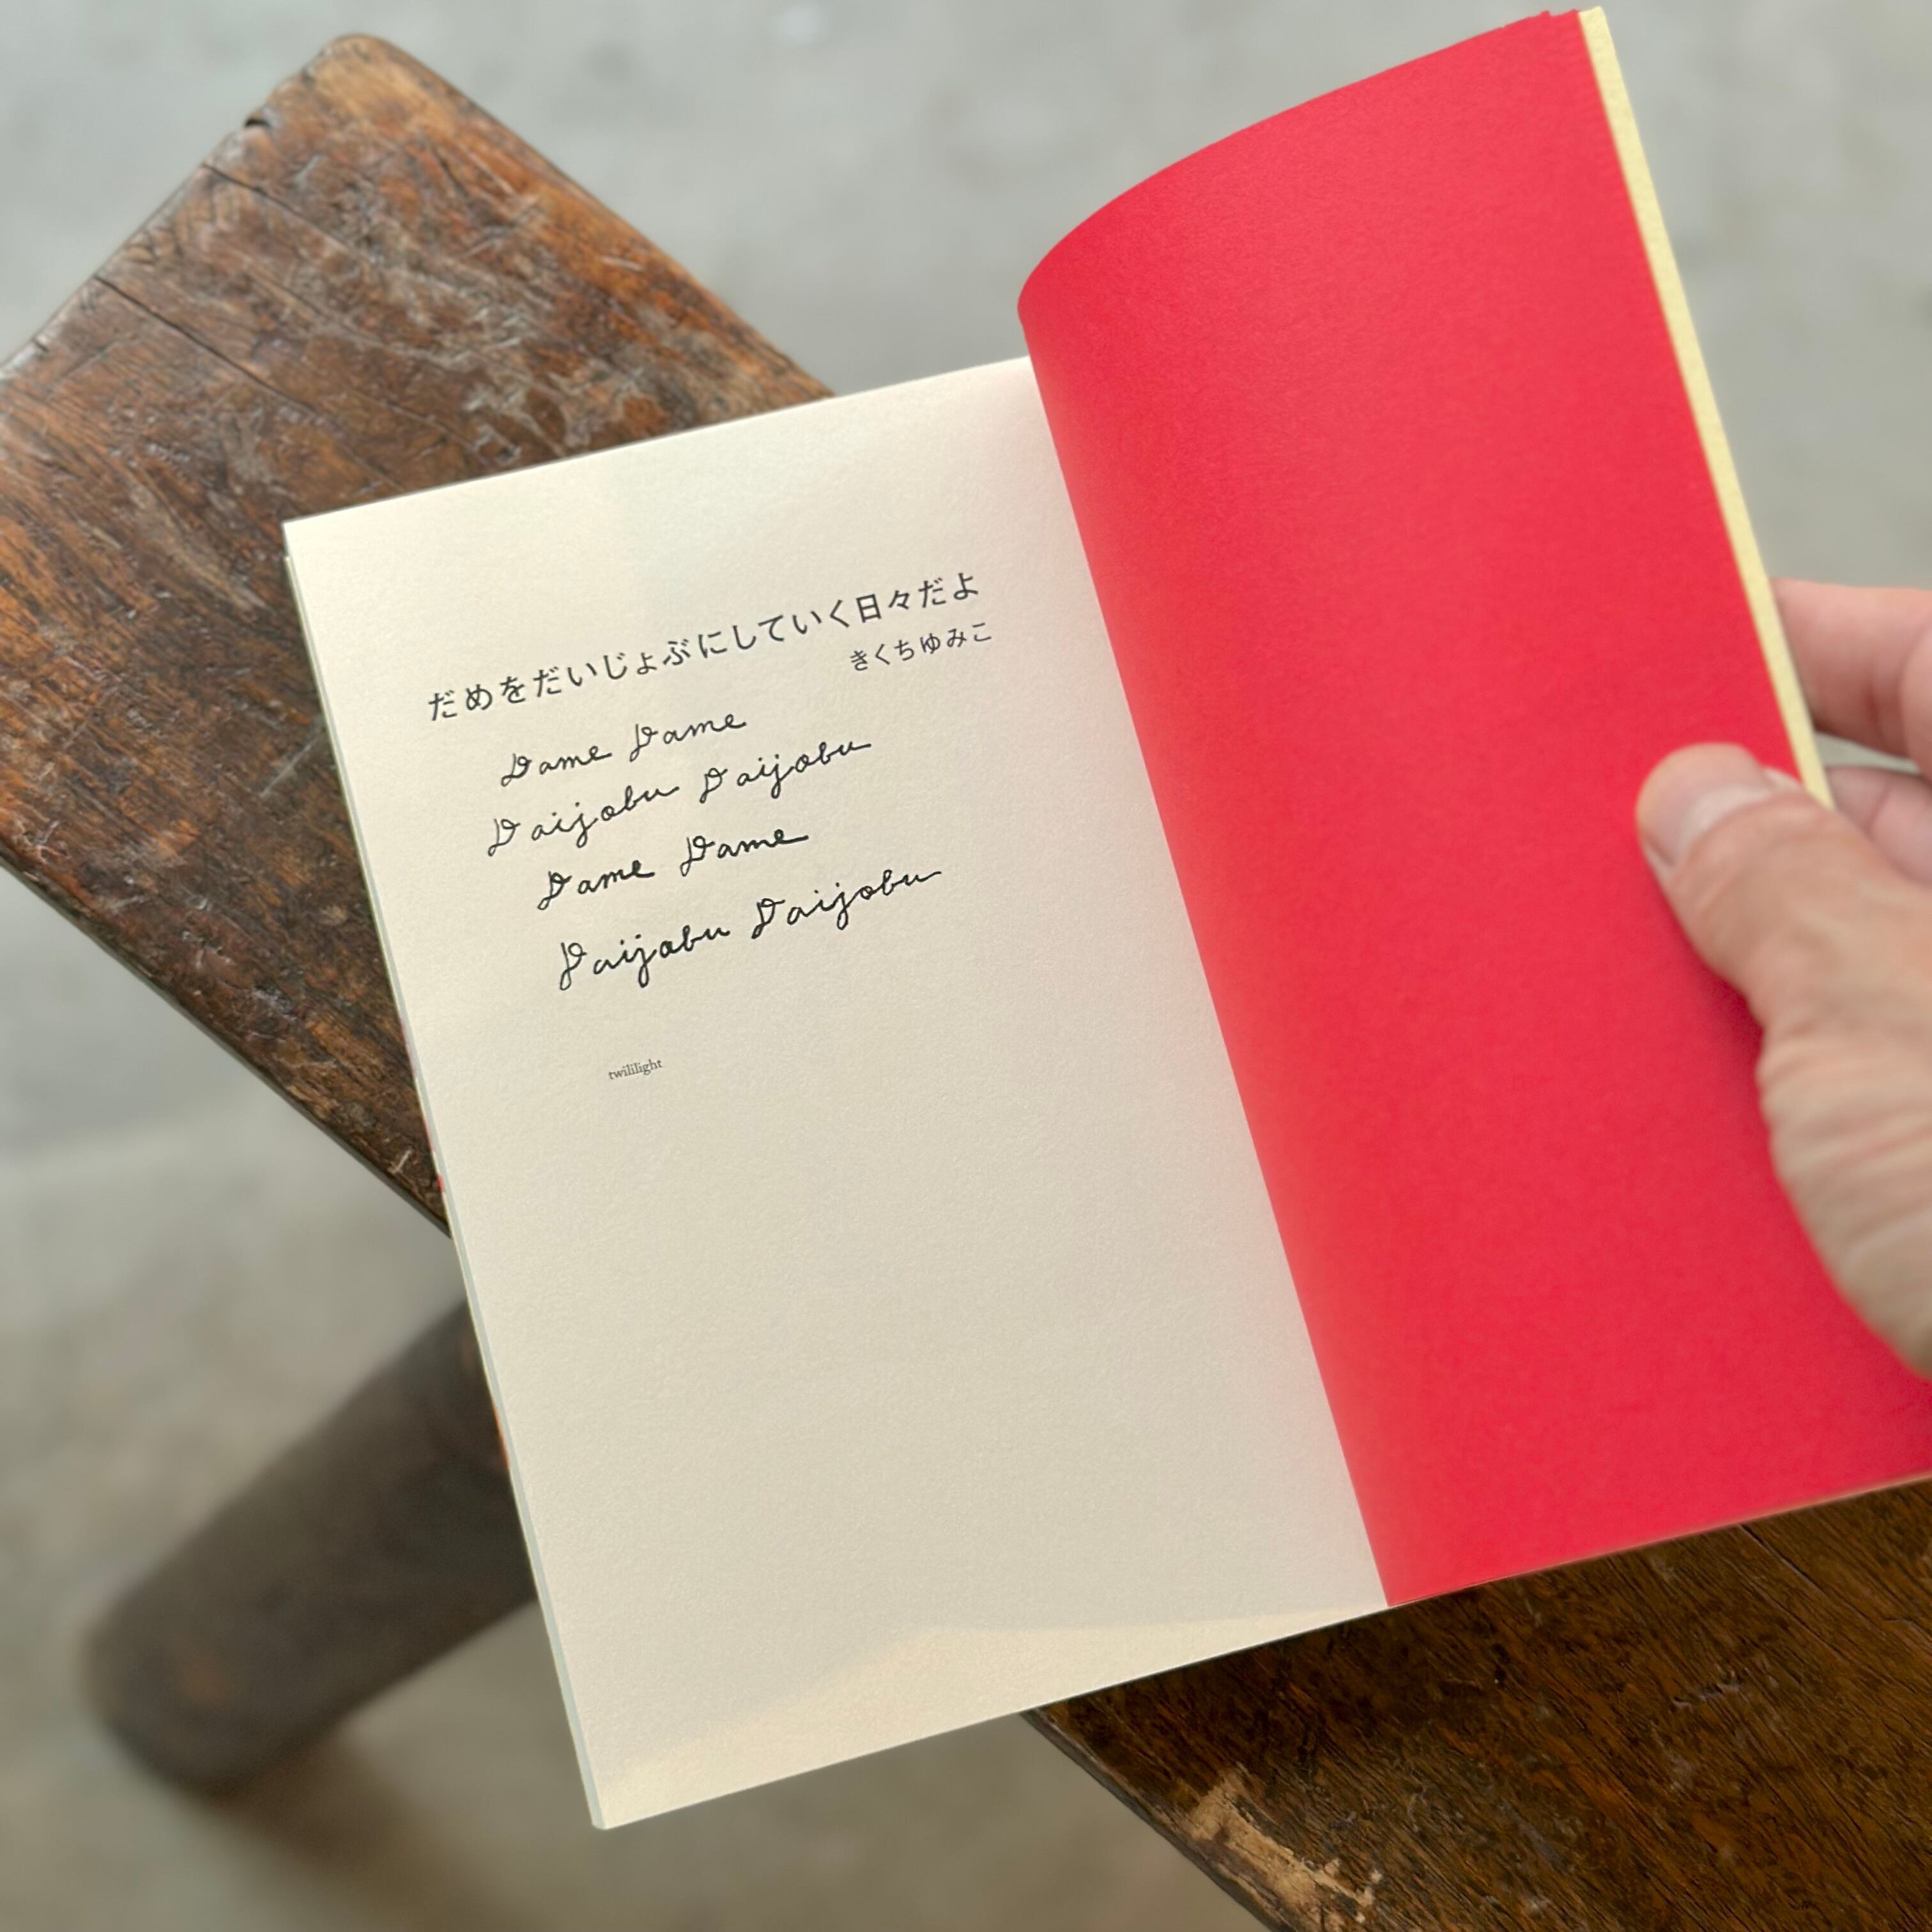 だめをだいじょぶにしていく日々だよ
きくちゆみこ
Dame Dame
Daijobu Daijobu
Dame Dame
Daijobu Daijobu
twililight